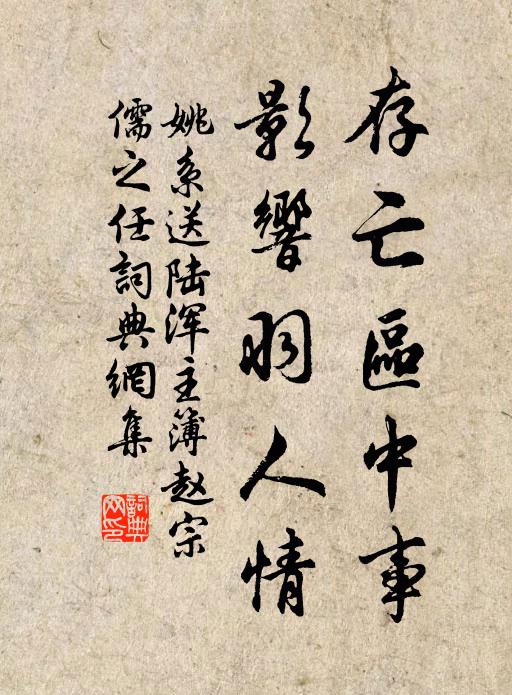 存亡區中事
影響羽人情
姚系送陆浑主簿赵宗
儒之任詞典網集
詞典
网印